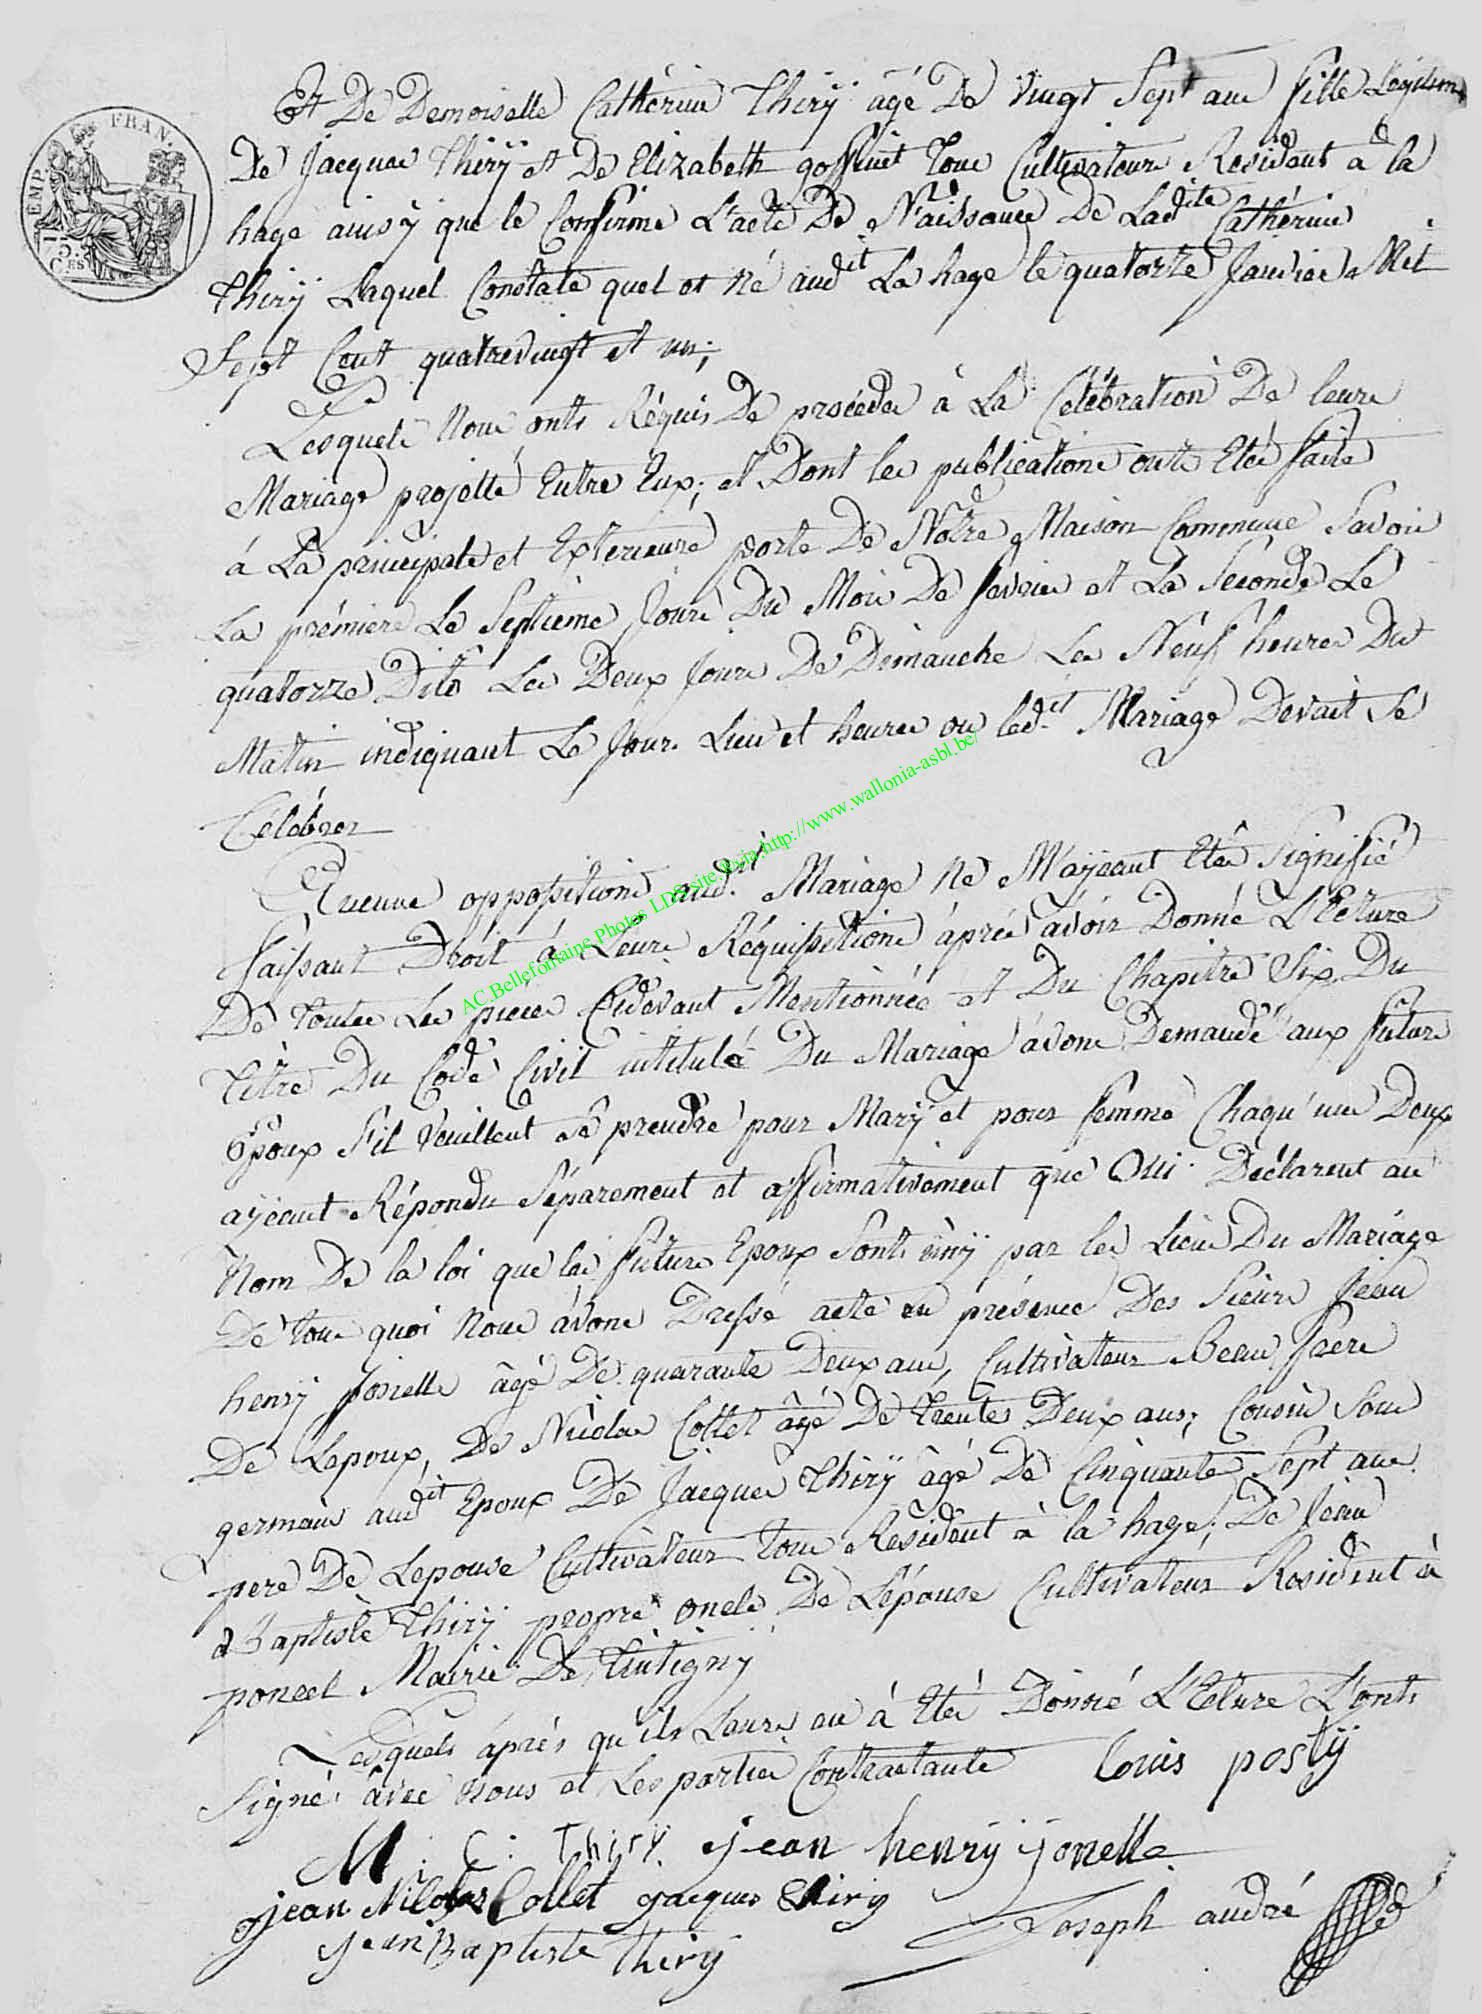 Et De Demoiselle Cathérine Thirÿ agé De Vingt Sept ans fille Legitime
De Jacques Thirÿ et De Elizabeth goffinet Tous Cultivateurs Resident à la
hage ainsÿ que le Confirme L'acte De Naissance De Ladite Cathérine
Thirÿ Laquel Constate quel et né audit La hage le quatorze Janvier Mil
Sept Cent quatrevingt et un;
Lesquels Nous onts Réquis De procéder à La Célébration De leurs
Mariage projetté Entre Eux; et Dont les publications onts Etés faite
à La principale et Exterieure porte De Notre Maison Commune Savoir
La prémiere Le Septieme Jours Du Mois De fevrier et La Seconde Le
quatorze Dito Les Deux Jours De Dimanche Les Neuf heures Du
Matin indiquant Le Jour Lieu et heures ou ledit Mariage Devait Se
Celébrer
Aucune oppositions audit Mariage Ne M'aÿeant Etés Signifié
faisant Droit à Leurs Réquisitions áprés ávoir Donné L'Ecture
De toutes Les pieces Cidevant Mentionnées et Du Chapitre Six Du
titre Du Code Civil intitulé Du Mariage ávons Demandé aux futurs
Epoux S'il Veuillent Se prendre pour Marÿ et pour femme Chaqu'un Deux
aÿeant Répondu Séparement et affirmativement que Oui Déclarent au
Nom De la loi que les futurs Epoux Sonts ùnÿ par les Liens Du Mariage
De tous quoi Nous ávons Dressé acte en présence Des Sieurs Jean
henrÿ Jonette âgé De quarante Deux ans, Cultivateur Beau frere
De Lepoux, De Nicolas Collet âgé De trentes Deux ans; Cousin Sous
germain audit Epoux De Jacques Thirÿ âgé De Cinquante Sept ans
pere De Lepouse Cultivateur Tous Résident à la hage; De Jean
Baptiste Thirÿ propre oncle De L'épouse Cultivateur Resident à
poncel Mairie De Tintignÿ
Lesquels áprés qu'ils Leurs en à Etés Donné L'Ecture L'onts
Signé avec nous et Les parties Contractante Louis postÿ
M: C: Thiry jean henrÿ jonette
jean Nicolas Collet jacques thirÿ
Joseph andré
jean Baptiste thirÿ
EMP. FRAN.
75 CES
AC Bellefontaine Photos LDS site.Fr via http://www.wallonia-asbl.be/